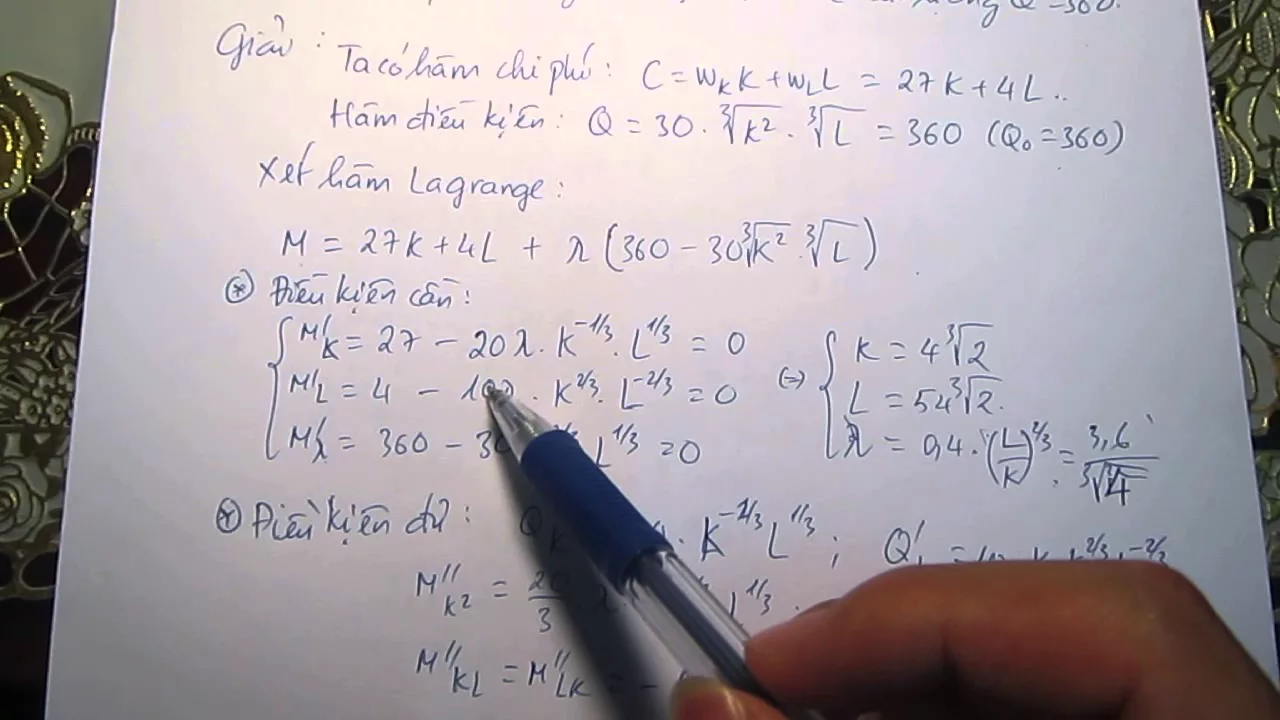 Q = 360.
Giải : Ta có hàm chi phí : C = w_K K + w_L L = 27K + 4L ..
Hàm điều kiện : Q = 30 . ∛K² . ∛L = 360 (Q₀ = 360)
Xét hàm Lagrange :
M = 27K + 4L + λ (360 − 30∛K² . ∛L)
⊛ Điều kiện cần :
M'_K = 27 − 20λ . K^{-1/3} . L^{1/3} = 0
M'_L = 4 − 10λ . K^{2/3} . L^{-2/3} = 0
M'_λ = 360 − 30 L^{1/3} = 0
(=) K = 4∛2
L = 54∛2 .
λ = 0,4 . (L/K)^{2/3} = 3,6 / ∛4
⊛ Điều kiện đủ : Q'_K . K^{-1/3} L^{1/3} ; Q'_L = K^{2/3} L^{-2/3}
M''_{K²} = 20/3 . λ L^{1/3} .
M''_{KL} = M''_{LK} = −